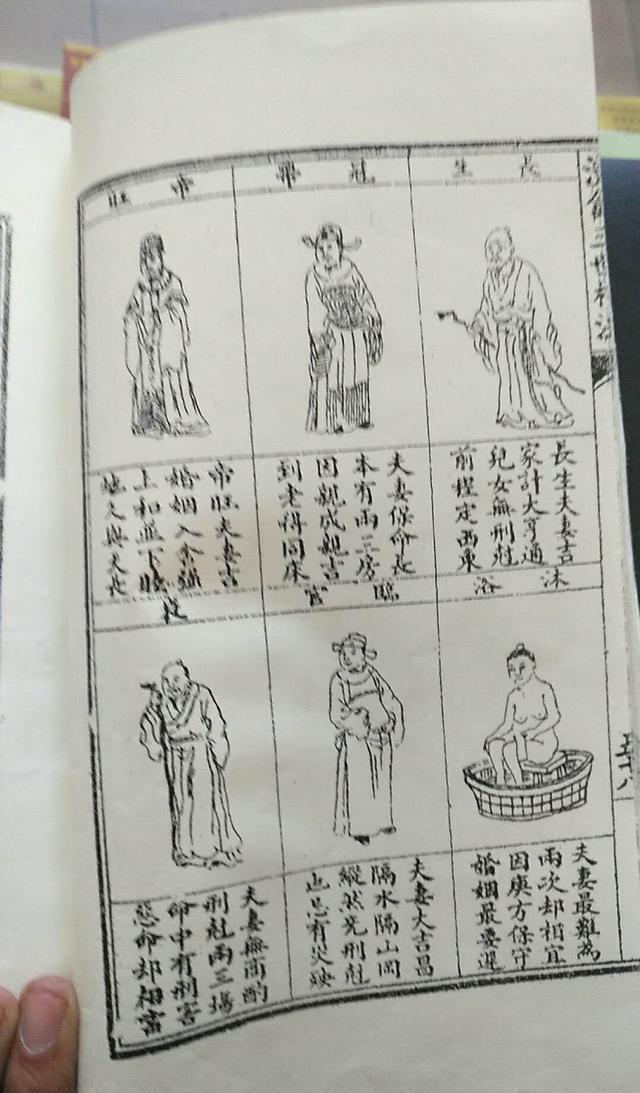 長生
長生夫妻吉
家計大亨通
兒女無刑尅
前程定西東
冠帶
夫妻保命長
本有兩三房
因親成親吉
到老得同床
帝旺
帝旺夫妻吉
婚姻入余強
上和並下睦
地久與天長
沐浴
夫妻最難為
兩次却相宜
因庚方保守
婚姻最要遲
臨官
夫妻大吉昌
隔水隔山岡
縱然免刑尅
也忌有災殃
衰
夫妻無商酌
刑尅兩三場
命中有刑害
惡命却相當
五十八